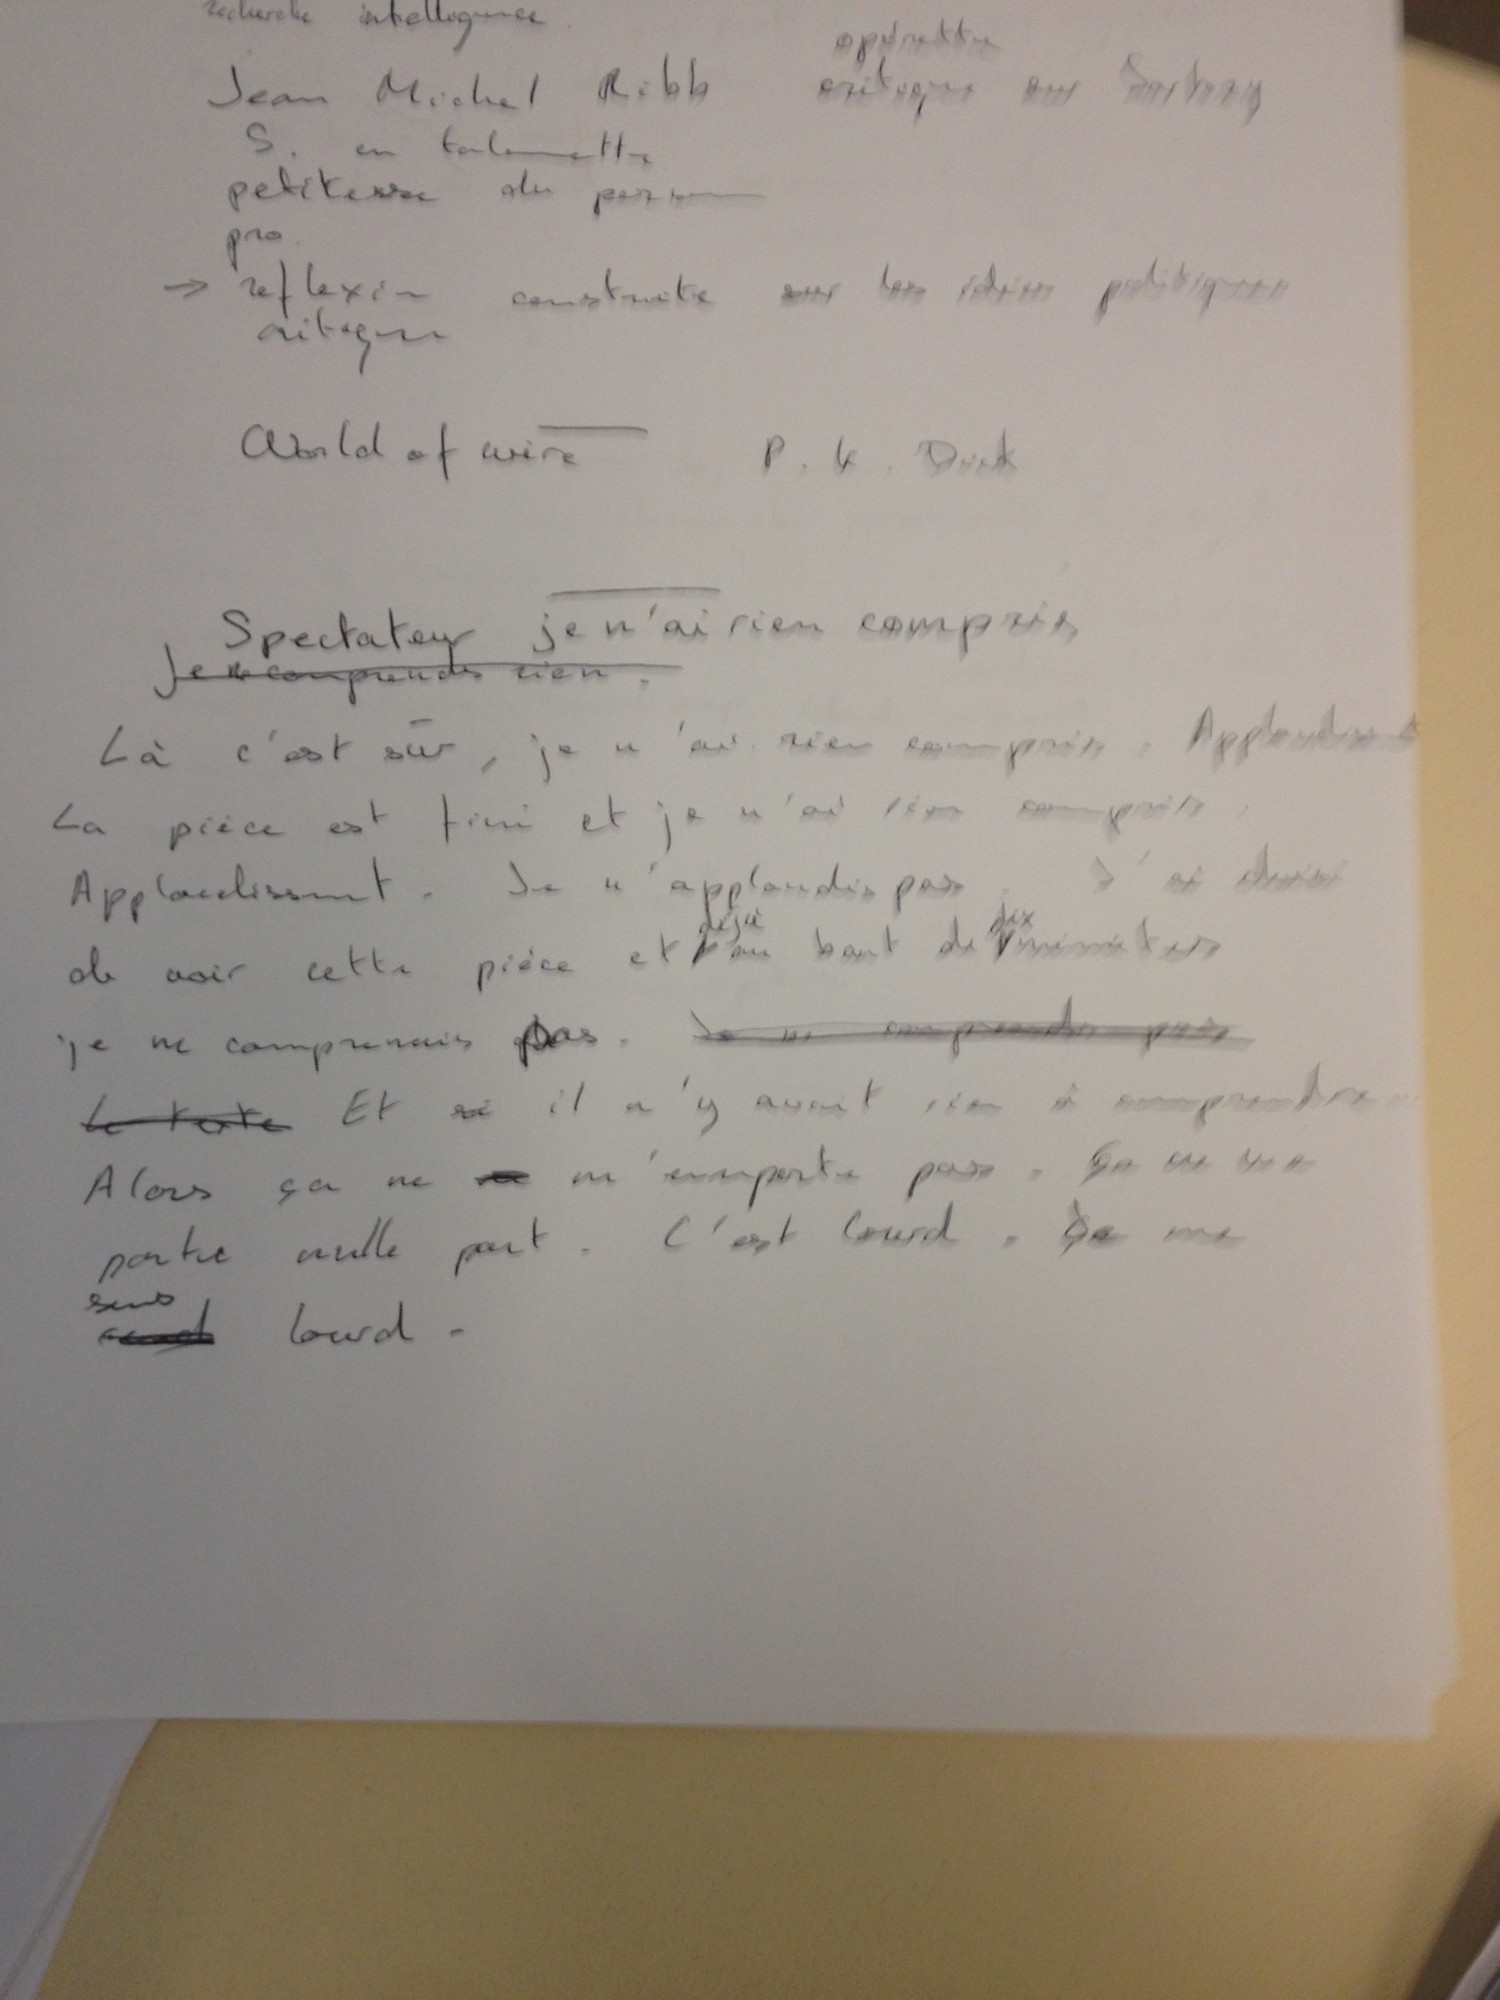 recherche intelligence
opérette
Jean Michel Ribb critique sur Sarkozy
S. en
petitesse du
pro.
→ reflexion construite sur les idées politiques
critique
World of wire P. K. Dick
Spectateur je n'ai rien compris
Je ne comprends rien.
Là c'est sûr, je n'ai rien compris. Applaudissent
La pièce est fini et je n'ai rien compris.
Applaudissent. Je n'applaudis pas. J'ai choisi
déjà dix
de voir cette pièce et au bout de minutes
je ne comprenais pas. Je ne comprends pas
le texte Et si il n'y avait rien à comprendre
Alors ça ne m'emporte pas. Ça ne me
porte nulle part. C'est lourd. Je me
sens
lourd.